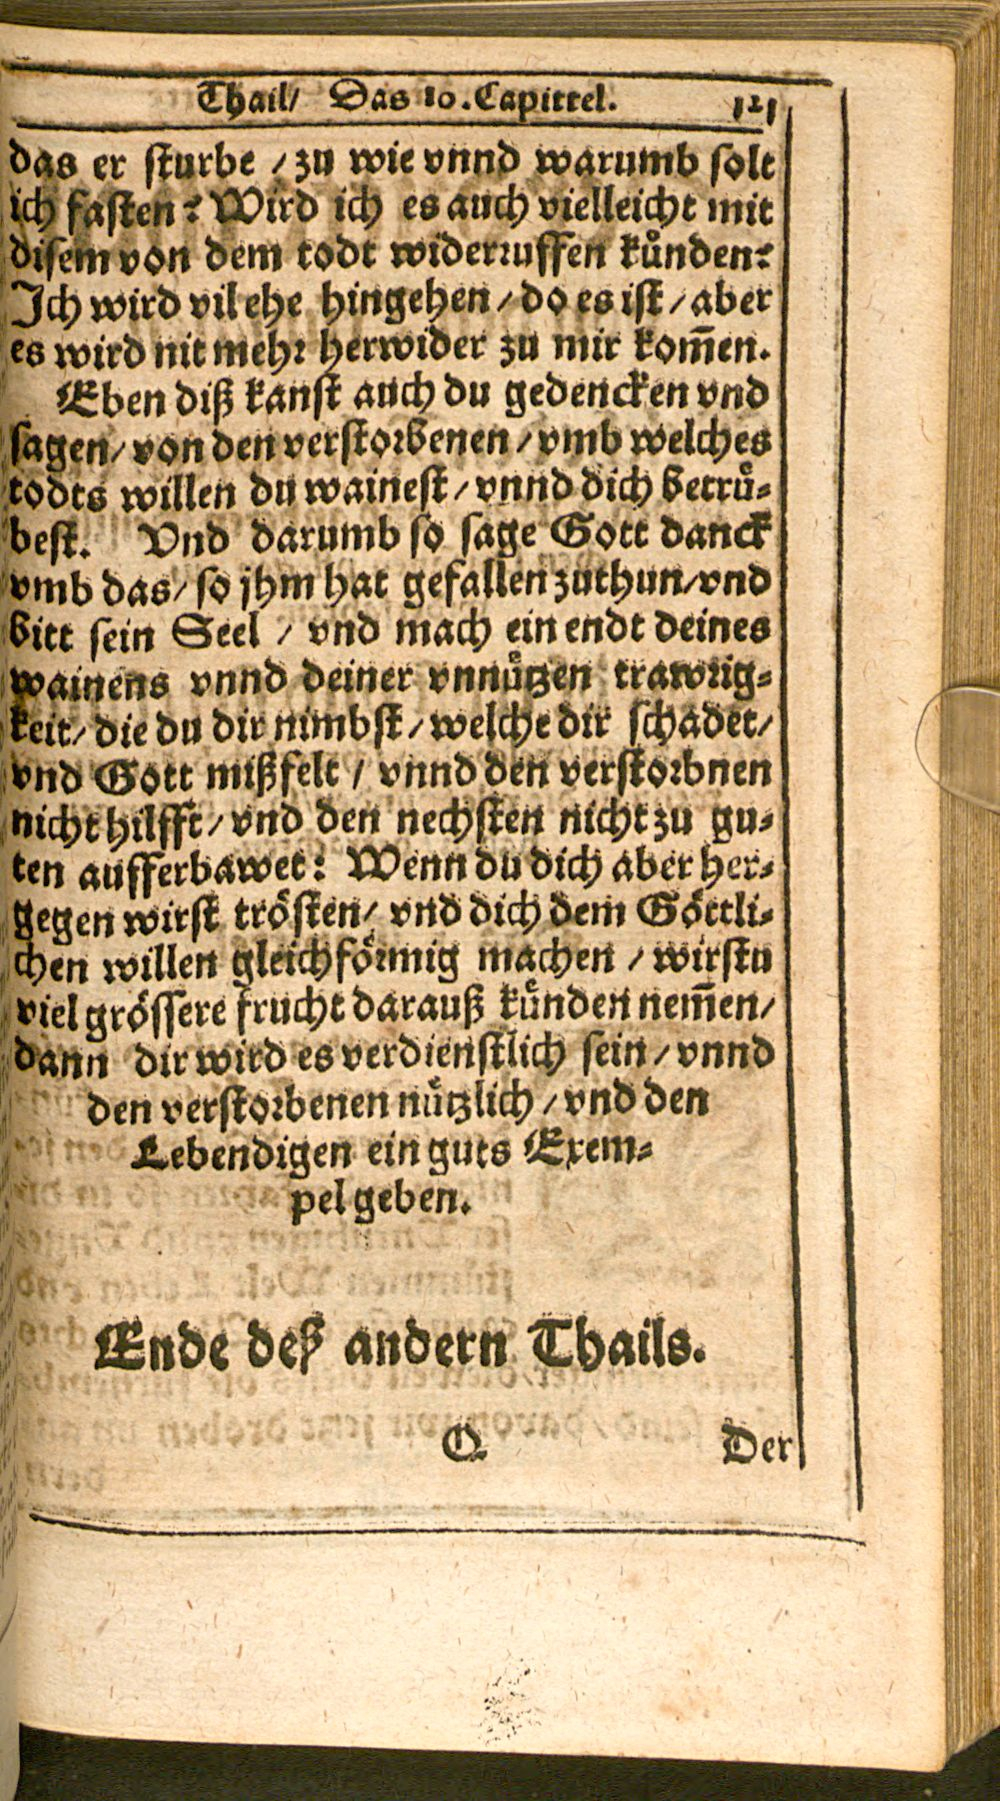 Thail/ Das 10. Capittel. 121
das er sturbe / zu wie vnnd warumb solt
ich fasten? Wird ich es auch vielleicht mit
disem von dem todt widerruffen kůnden?
Ich wird vil ehe hingehen / do es ist / aber
es wird nit mehr herwider zu mir kom̃en.
Eben diß kanst auch du gedencken vnd
sagen / von den verstorbenen / vmb welches
todts willen du wainest / vnnd dich betrů-
best. Vnd darumb so sage Gott danck
vmb das / so jhm hat gefallen zuthun / vnd
bitt sein Seel / vnd mach ein endt deines
wainens vnnd deiner vnnůtzen trawrig-
keit / die du dir nimbst / welche dir schadet /
vnd Gott mißfelt / vnnd den verstorbnen
nicht hilfft / vnd den nechsten nicht zu gu-
ten aufferbawet: Wenn du dich aber her-
gegen wirst trösten / vnd dich dem Göttli-
chen willen gleichförmig machen / wirstu
viel grössere frucht darauß kůnden nem̃en /
dann dir wird es verdienstlich sein / vnnd
den verstorbenen nůtzlich / vnd den
Lebendigen ein guts Exem-
pel geben.
Ende deß andern Thails.
Q Der